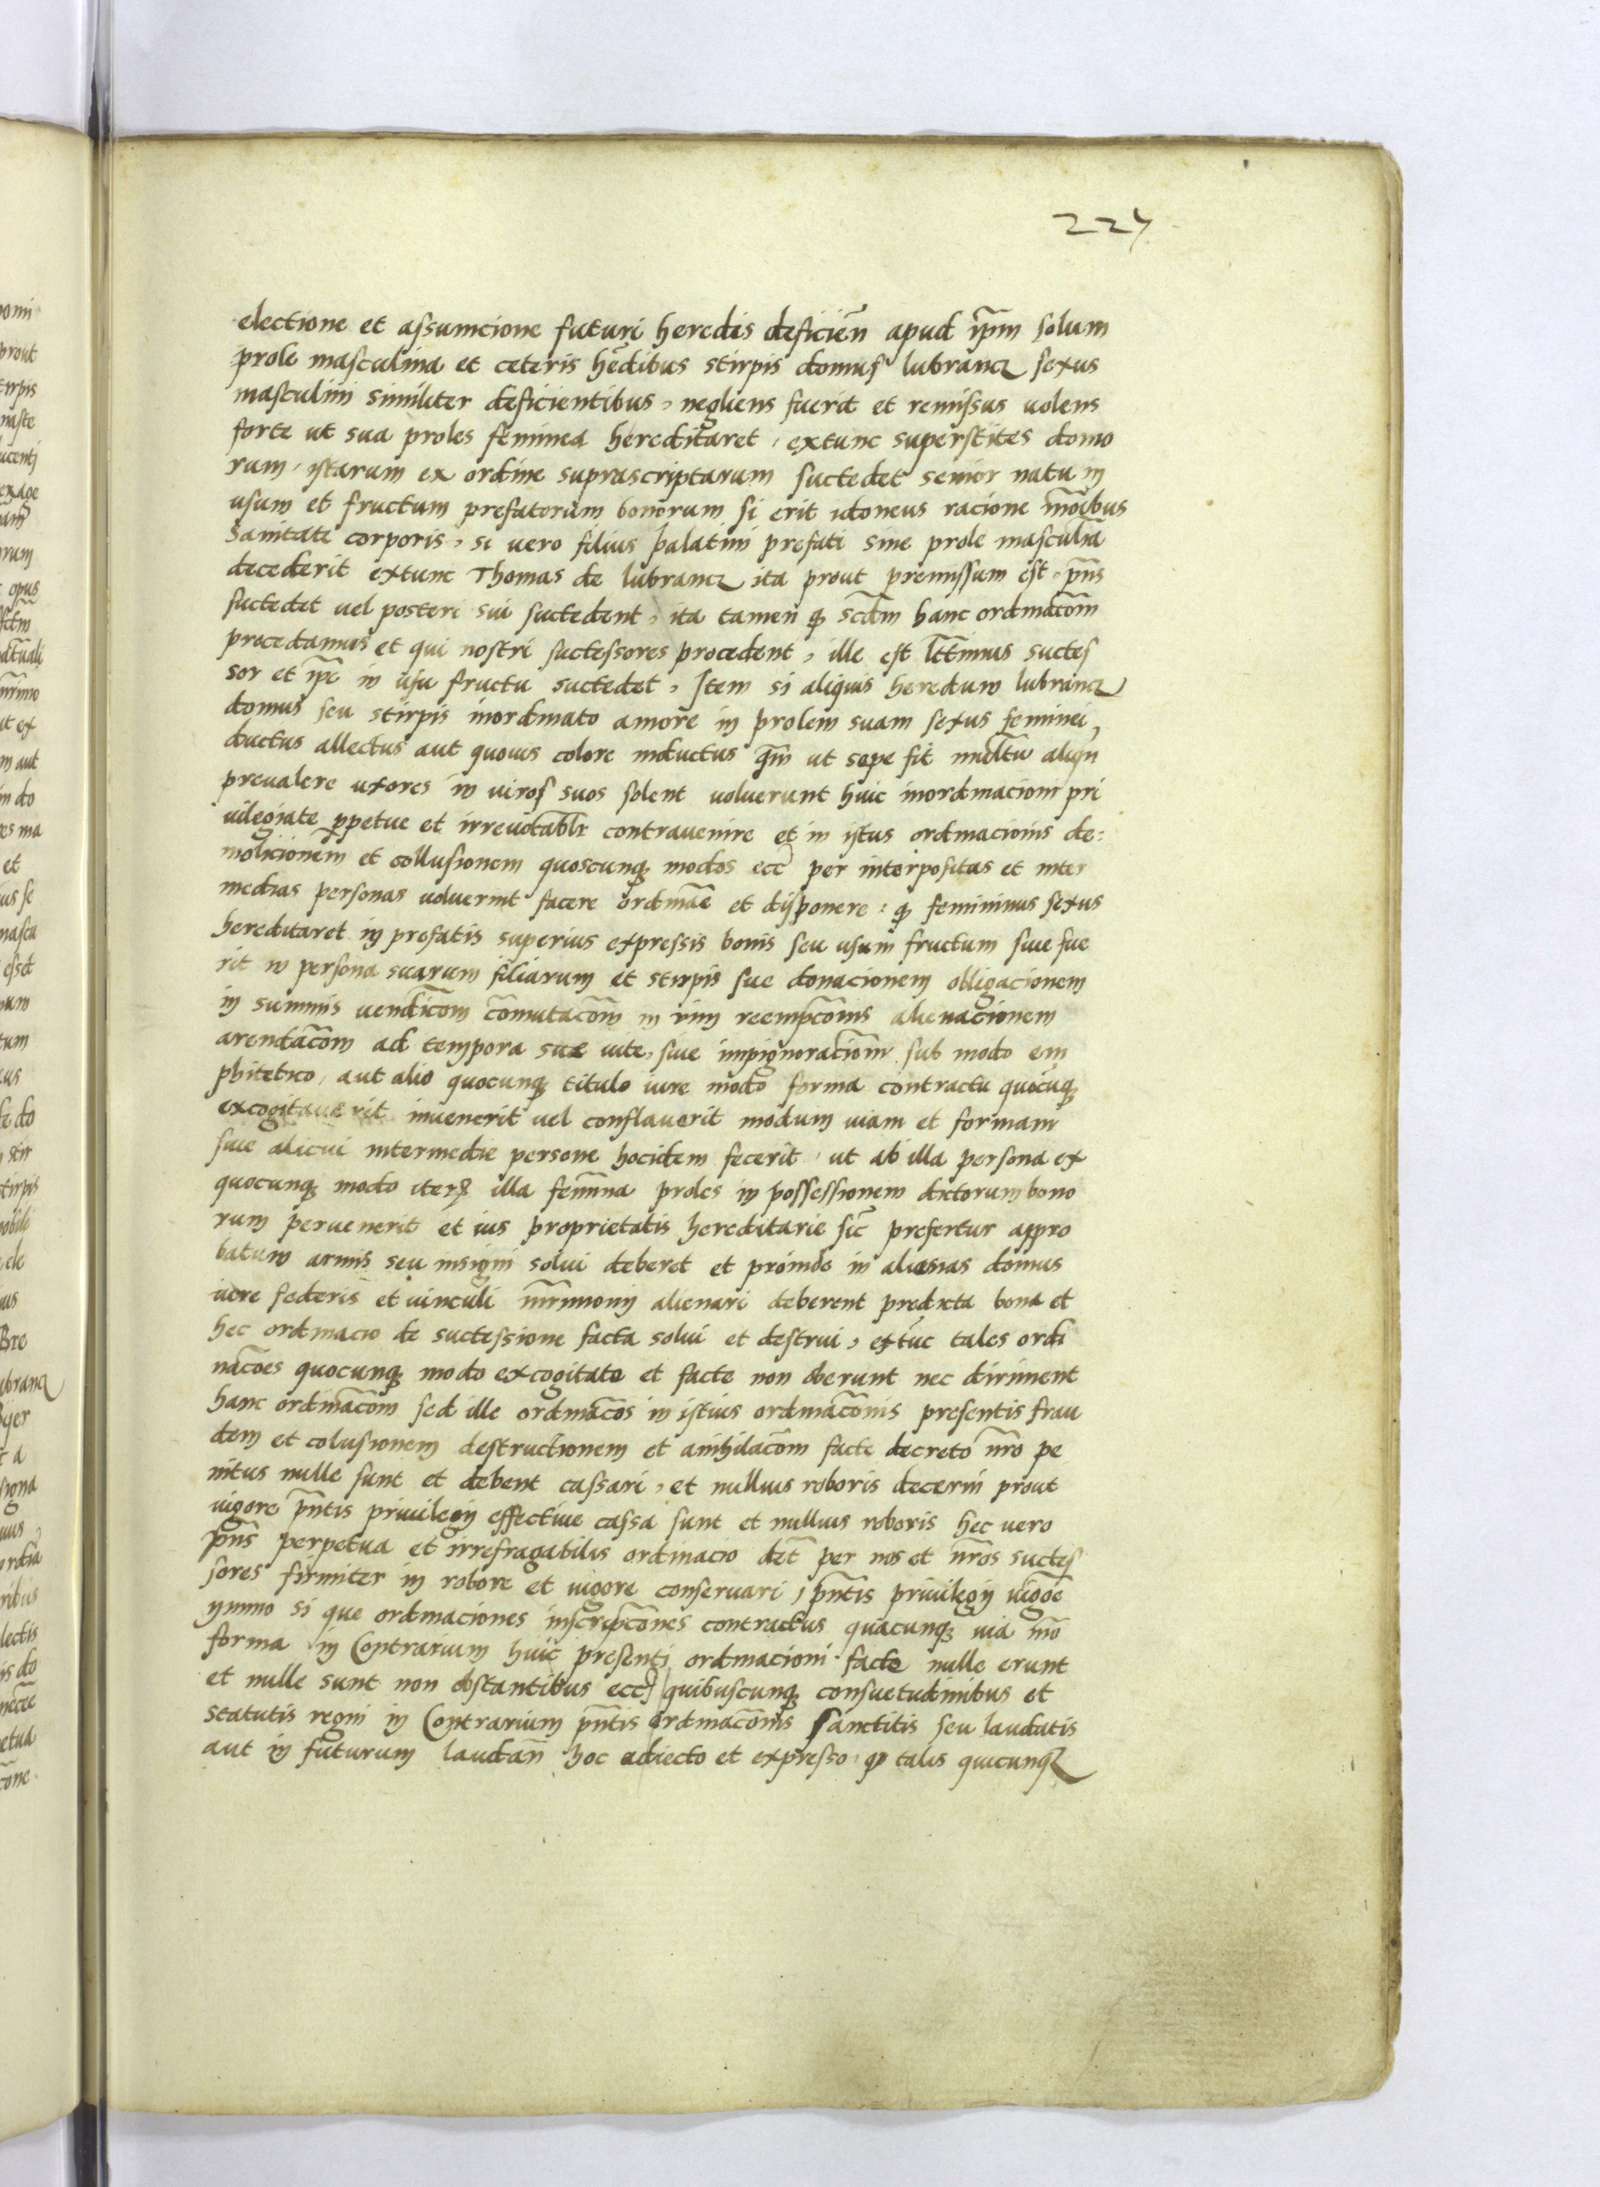 227
electione et assumcione futuri heredis deficien̄ apud ip̄m solum
prole masculina et ceteris hēdibus stirpis domus lubrancz sexus
masculini similiter deficientibus, negliens fuerit et remissus uolens
forte ut sua proles feminea hereditaret, extunc superstites domo
rum, istarum ex ordine suprascriptarum succedet senior natu in
usum et fructum prefatorum bonorum si erit idoneus racione mōibus
Sanitate corporis, si uero filius palatini prefati sine prole masculīa
decederit extunc Thomas de lubrancz ita prout premissum est, pn̄s
succedet uel posteri sui succedent, ita tamen ꝙ scd̄m hanc ordinacōm
procedamus et qui nostri successores procedent, ille est lttīmus succes
sor et ip̄e in usu fructu succedet, Item si aliquis heredum lubrancz
domus seu stirpis inordinato amore in prolem suam sexus feminei,
ductus allectus aut quouis colore inductus qm̄ ut sepe fit multū aliqn̄
preualere uxores in uiros suos solent uoluerunt huic inordinacioni pri
uilegiate ꝑpetue et irreuocablr̄ contrauenire et in istus ordinacionis de:
molicionem et collusionem quoscunqꝫ modos ecc̄ per interpositas et inter
medias personas uoluerint facere ordināe et disponere: ꝙ femininus sexus
hereditaret in prefatis superius expressis bonis seu usum fructum siue fue
rit in persona suarum filiarum et stirpis sue donacionem obligacionem
in summis uendicōm cōmutacōm in vim reempcōnis alienacionem
arendacōm ad tempora suæ uite, siue impignoraciōm sub modo em
phitetico, aut alio quocunqꝫ titulo iure modo forma contractu quocūqꝫ
excogitauerit inuenerit uel conflauerit modum uiam et formam
siue alicui intermedie persone hocidem fecerit, ut ab illa persona ex
quocunqꝫ modo iterꝝ illa femīna proles in possessionem dictorum bono
rum peruenerit et ius proprietatis hereditarie sic̄ prefertur appro
batum armis seu insigni solui deberet et proinde in alienas domus
iure federis et uinculi mr̄imonij alienari deberent predicta bona et
hec ordinacio de successione facta solui et destrui, extūc tales ordi
nacōes quocunqꝫ modo excogitate et facte non oberunt nec diriment
hanc ordinacōm sed ille ordinacōs in istius ordinacōnis presentis frau
dem et colusionem destructionem et anihilacōm facte decreto nr̄o pe
nitus nulle sunt et debent cassari, et nullius roboris decerni prout
uigore pn̄tis priuilegij effectiue cassa sunt et nullius roboris hec uero
pn̄s perpetua et irrefragabilis ordinacio det̄ per nos et nr̄os succes
sores firmiter in robore et uigore conseruari, pn̄tis priuilegij uigōe
ymmo si que ordinaciones inscripcōnes contractus quacunqꝫ uia mō
forma in Contrarium huic presenti ordinacioni facte nulle erunt
et nulle sunt non obstantibus ecc̄ quibuscunqꝫ consuetudinibus et
statutis regni in Contrarium pn̄tis ordinacōnis Sanctitis seu laudatis
aut in futurum laudan̄ hoc adiecto et expresso ꝙ talis quicunqꝫ